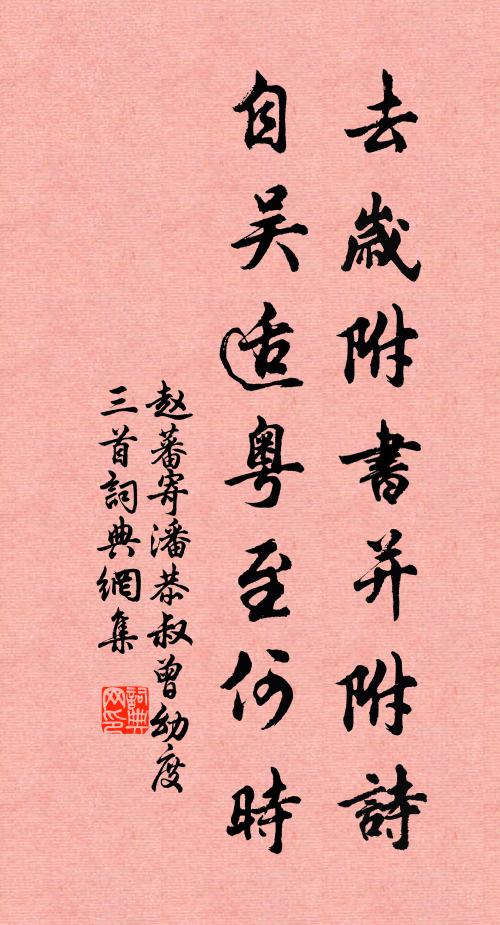 去歲附書并附詩
自吴适粵至何時
赵蕃寄潘恭叔曾幼度
三首詞典網集
詞典
网印